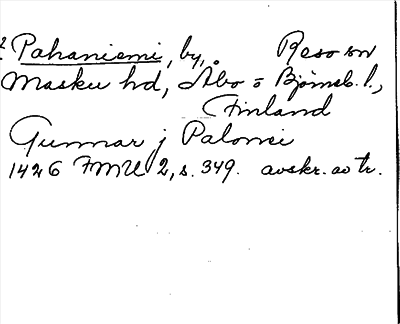 ? Pahaniemi, by, Reso sn
Masku hd, Åbo o Björneb. l.,
Finland
Gunnar j Palomei
1426 FMU 2, s. 349. avskr. av tr.